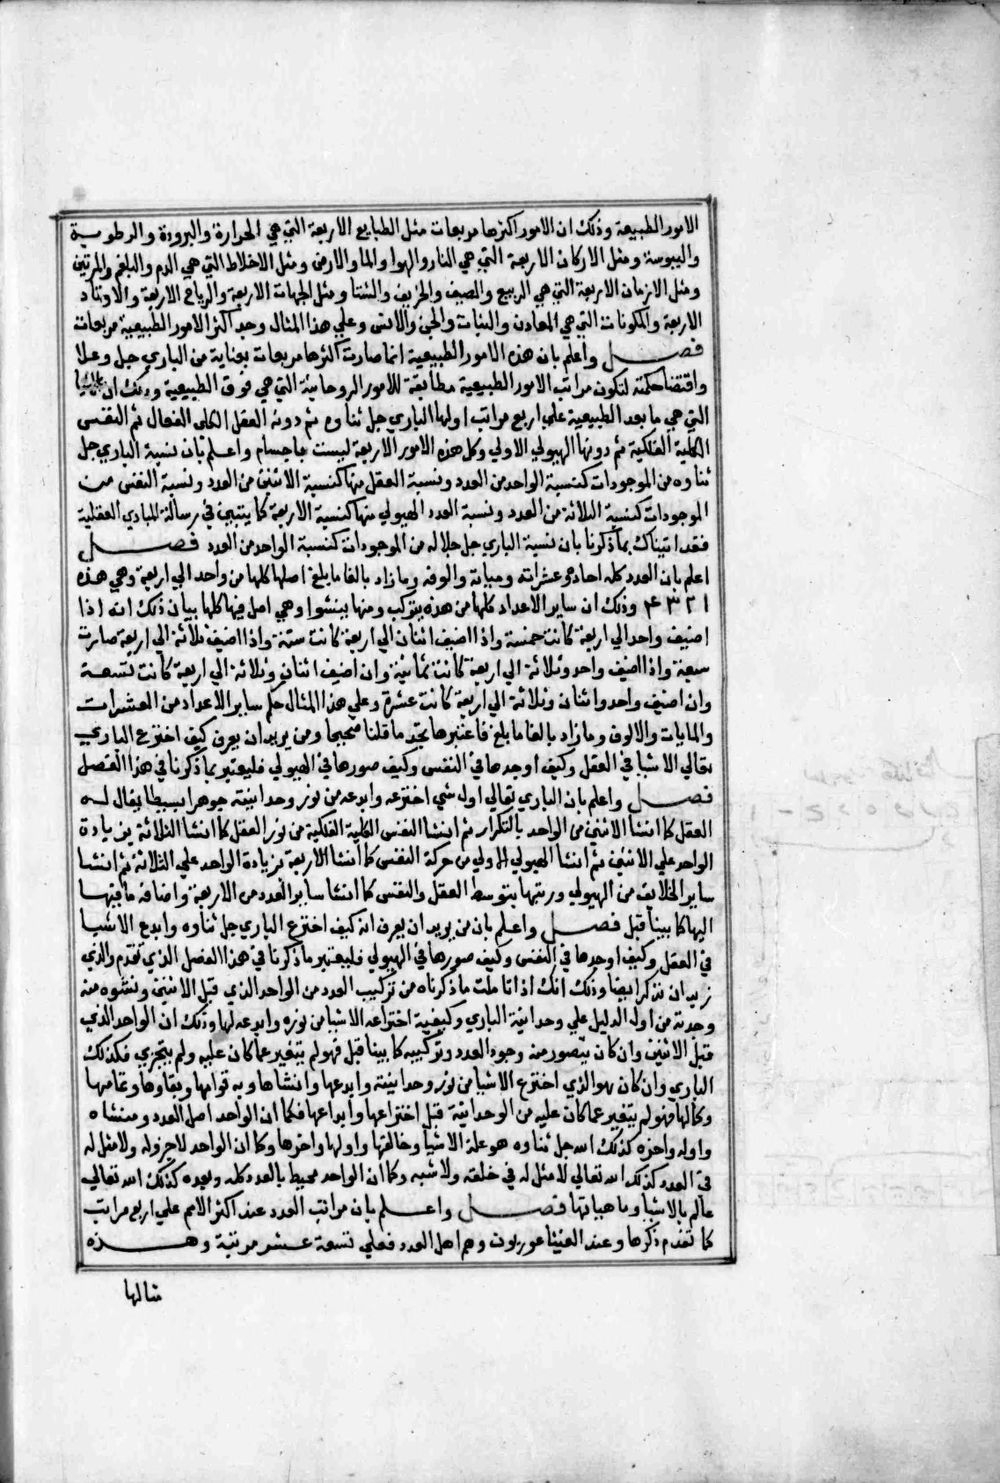 الامور الطبيعة وذلك ان الامور اكثرها مربعات مثل الطبايع الاربعة التي هي الحرارة والبرودة والرطوبة
واليبوسة ومثل الاركان الاربعة التي هي النار والهوا والما والارض ومثل الاخلاط التي هي الدم والبلغم والمرتين
ومثل الازمان الاربعة التي هي الربيع والصيف والخريف والشتا ومثل الجهات الاربعة والرياح الاربعة والاوتاد
الاربعة والمكونات التي هي المعادن والنبات والجن والانس وعلي هذا المثال وجد اكثر الامور الطبيعية مربعات
فصل واعلم بان هذه الامور الطبيعية انما صارت اكثرها مربعات بعناية من الباري جل وعلا
واقتضا حكمته لتكون مراتب الامور الطبيعية مطابقة للامور الروحانية التي هي فوق الطبيعية وذلك ان الاشيا
التي هي ما بعد الطبيعية علي اربع مراتب اولها الباري جل ثناوه ثم دونه العقل الكلي الفعال ثم النفس
الكلية الفلكية ثم دونها الهيولي الاولي وكل هذه الامور الاربعة ليست باجسام واعلم بان نسبة الباري جل
ثناوه من الموجودات كنسبة الواحد من العدد ونسبة العقل منها كنسبة الاثنين من العدد ونسبة النفس من
الموجودات كنسبة الثلاثة من العدد ونسبة العدد الهيولي منها كنسبة الاربعة كما يتبين في رسالة المبادي العقلية
فقد اتيناك بما ذكرنا بان نسبة الباري جل جلاله من الموجودات كنسبة الواحد من العدد فصل
اعلم بان العدد كله احاده وعشراته ومياته والوفه وما زاد بالغا ما بلغ اصلها كلها من واحد الي اربعة وهي هذه
١ ٢ ٣ ۴ وذلك ان ساير الاعداد كلها من هذه يتركب ومنها ينشوا وهي اصل فيها كلها بيان ذلك انه اذا
اضيف واحد الي اربعة كانت خمسة واذا اضيف اثنان الي اربعة كانت ستة واذا اضيف ثلاثة الي اربعة صارت
سبعة واذا اضيف واحد وثلاثة الي اربعة كانت ثمانية وان اضيف اثنان وثلاثة الي اربعة كانت تسعة
وان اضيف واحد واثنان وثلاثة الي اربعة كانت عشرة وعلي هذا المثال حكم ساير الاعداد من العشرات
والمايات والالوف وما زاد بالغا ما بلغ فاعتبرها تجد ما قلنا صحيحا ومن يريد ان يعرف كيف اخترع الباري
تعالي الاشيا في العقل وكيف اوجدها في النفس وكيف صورها في الهيولي فليعتبر بما ذكرنا في هذا الفصل
فصل واعلم بان الباري تعالي اول شي اخترعه وابدعه من نور وحدانيته جوهرا بسيطا يقال له
العقل كما انشا الاثنين من الواحد بالتكرار ثم انشا النفس الكلية الفلكية من نور العقل كما انشا الثلاثة بزيادة
الواحد علي الاثنين ثم انشا الهيولي الاولي من حركة النفس كما انشا الاربعة بزيادة الواحد علي الثلاثة ثم انشا
ساير الخلايق من الهيولي ورتبها بتوسط العقل والنفس كما انشا ساير العدد من الاربعة واضافة ما قبلها
اليها كما بينا قبل فصل واعلم بان من يريد ان يعرف انه كيف اخترع الباري جل ثناوه وابدع الاشيا
في العقل وكيف اوجدها في النفس وكيف صورها في الهيولي فليعتبر ما ذكرنا في هذا الفصل الذي تقدم والذي
نريد ان نذكر ايضا وذلك انك اذا تاملت ما ذكرناه من تركيب العدد من الواحد الذي قبل الاثنين ونشوه منه
وجدته من اول الدليل علي وحدانية الباري وكيفية اختراعه الاشيا من نوره وابداعه لها وذلك ان الواحد الذي
قبل الاثنين وان كان يتصور منه وجود العدد وتركيبه كما بينا قبل فهو لم يتغير عما كان عليه ولم يتجزي فكذلك
الباري وان كان هو الذي اخترع الاشيا من نور وحدانيته وابدعها وانشاها وبه قوامها وبقاوها وتمامها
وكمالها فهو لم يتغير عما كان عليه من الوحدانية قبل اختراعها وابداعها فكما ان الواحد اصل العدد ومنشاه
واوله واخره كذلك الله جل ثناوه هو علة الاشيا وخالقها واولها واخرها وكما ان الواحد لا جزو له ولا مثل له
في العدد كذلك الله تعالي لا مثل له في خلقه ولا شبه وكما ان الواحد محيط بالعدد كله ويعده كذلك الله تعالي
عالم بالاشيا وماهياتها فصل واعلم بان مراتب العدد عند اكثر الامم علي اربع مراتب
كما تقدم ذكرها وعند الفيثاغوريون وهم اهل العدد فعلي تسعة عشر مرتبة وهذه
مثالها